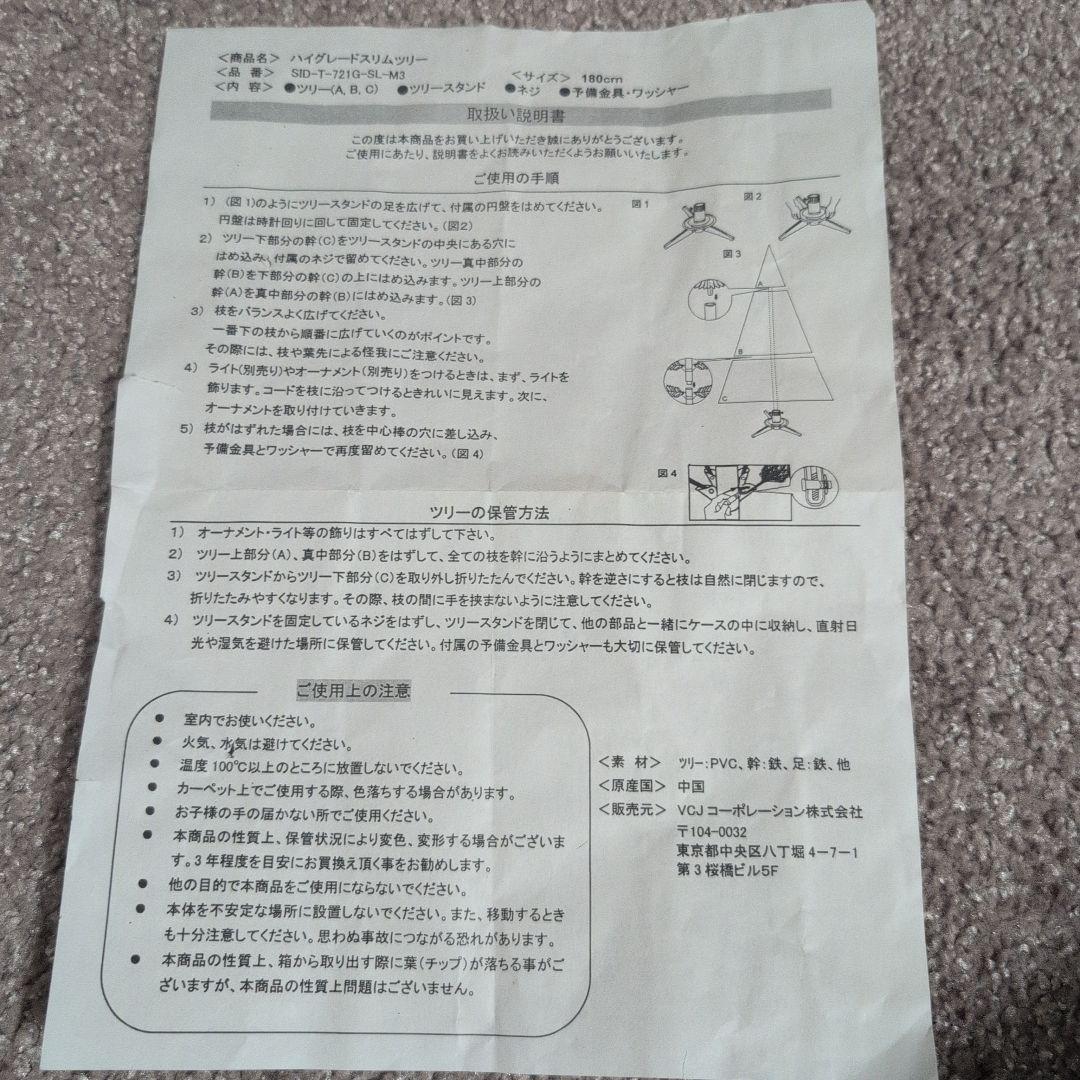 ＜商品名＞ ハイグレードスリムツリー
＜品 番＞ SID-T-721G-SL-M3 ＜サイズ＞ 180cm
＜内 容＞ ●ツリー(A, B, C) ●ツリースタンド ●ネジ ●予備金具・ワッシャー
取扱い説明書
この度は本商品をお買い上げいただき誠にありがとうございます。
ご使用にあたり、説明書をよくお読みいただくようお願いいたします。
ご使用の手順
1) (図1)のようにツリースタンドの足を広げて、付属の円盤をはめてください。
円盤は時計回りに回して固定してください。(図2)
2) ツリー下部分の幹(C)をツリースタンドの中央にある穴に
はめ込み、付属のネジで留めてください。ツリー真中部分の
幹(B)を下部分の幹(C)の上にはめ込みます。ツリー上部分の
幹(A)を真中部分の幹(B)にはめ込みます。(図3)
3) 枝をバランスよく広げてください。
一番下の枝から順番に広げていくのがポイントです。
その際には、枝や葉先による怪我にご注意ください。
4) ライト(別売り)やオーナメント(別売り)をつけるときは、まず、ライトを
飾ります。コードを枝に沿ってつけるときれいに見えます。次に、
オーナメントを取り付けていきます。
5) 枝がはずれた場合には、枝を中心棒の穴に差し込み、
予備金具とワッシャーで再度留めてください。(図4)
図1
図2
図3
A
B
C
図4
ツリーの保管方法
1) オーナメント・ライト等の飾りはすべてはずして下さい。
2) ツリー上部分(A)、真中部分(B)をはずして、全ての枝を幹に沿うようにまとめてください。
3) ツリースタンドからツリー下部分(C)を取り外し折りたたんでください。幹を逆さにすると枝は自然に閉じますので、
折りたたみやすくなります。その際、枝の間に手を挟まないように注意してください。
4) ツリースタンドを固定しているネジをはずし、ツリースタンドを閉じて、他の部品と一緒にケースの中に収納し、直射日
光や湿気を避けた場所に保管してください。付属の予備金具とワッシャーも大切に保管してください。
ご使用上の注意
● 室内でお使いください。
● 火気、水気は避けてください。
● 温度100℃以上のところに放置しないでください。
● カーペット上でご使用する際、色落ちする場合があります。
● お子様の手の届かない所でご使用ください。
● 本商品の性質上、保管状況により変色、変形する場合がございま
す。3年程度を目安にお買換え頂く事をお勧めします。
● 他の目的で本商品をご使用にならないでください。
● 本体を不安定な場所に設置しないでください。また、移動するとき
も十分注意してください。思わぬ事故につながる恐れがあります。
● 本商品の性質上、箱から取り出す際に葉(チップ)が落ちる事がご
ざいますが、本商品の性質上問題はございません。
＜素 材＞ ツリー:PVC、幹:鉄、足:鉄、他
＜原産国＞ 中国
＜販売元＞ VCJコーポレーション株式会社
〒104-0032
東京都中央区八丁堀4-7-1
第3桜橋ビル5F